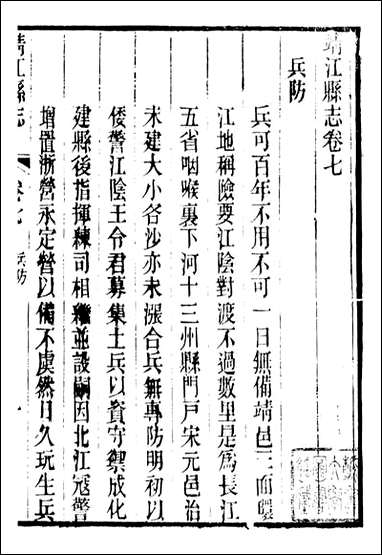 靖江縣志卷七
兵防
兵可百年不用不可一日無備靖邑三面瀕
江地稱險要江陰對渡不過數里是爲長江
五省咽喉裏下河十三州縣門戸宋元邑治
未建大小各沙亦未漲合兵無專防明初以
倭警江陰王令君募集土兵以資守禦成化
建縣後指揮練司相繼並設嗣因北江冦警
增置浙營永定營以備不虞然日久玩生兵
靖江縣志
卷七
兵防
一